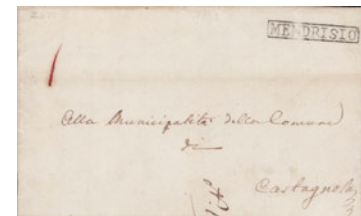 MENDRISIO
Alla Municipalità della Comune
di
Castagnola